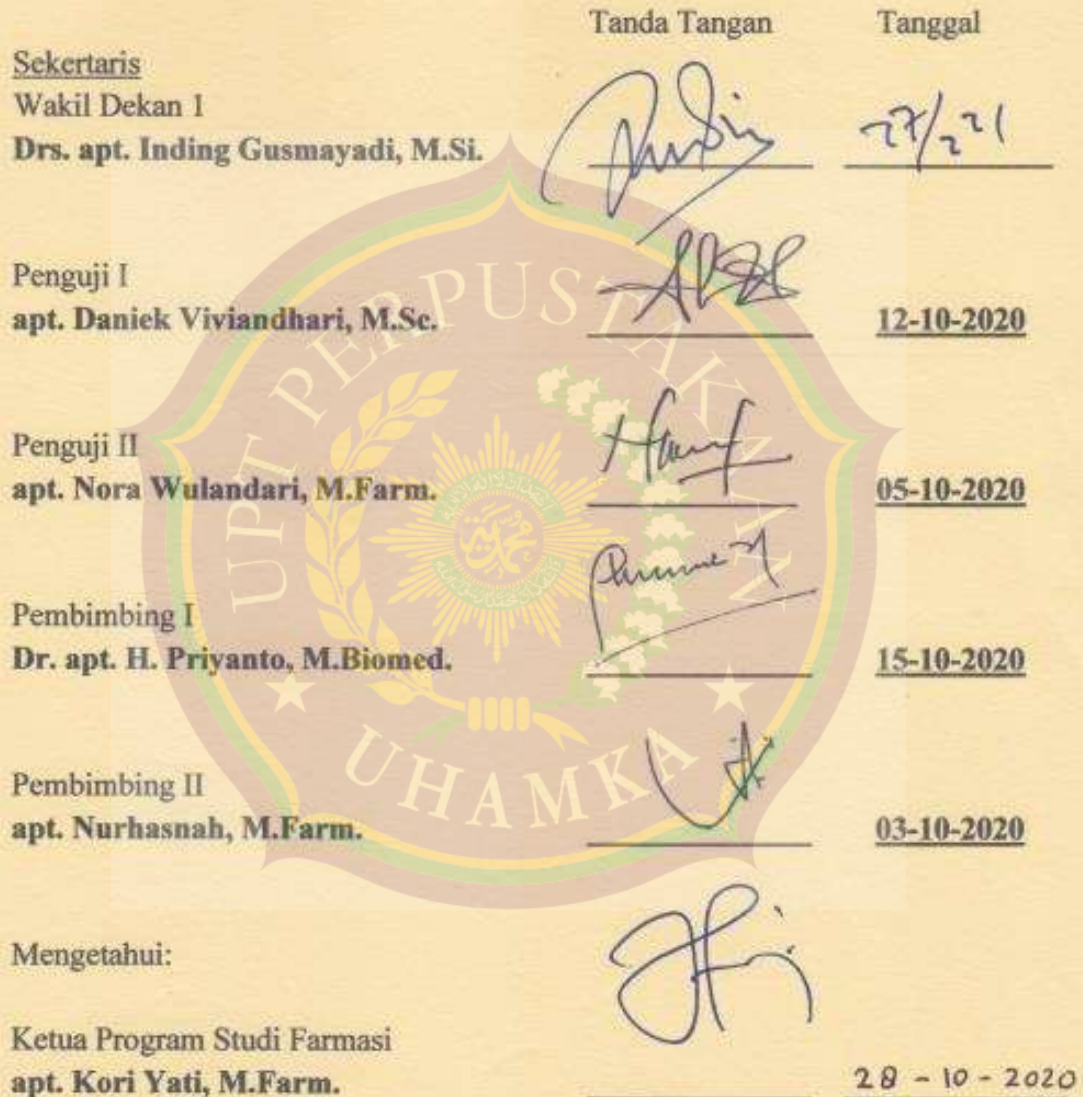 Tanda Tangan Tanggal
Sekertaris
Wakil Dekan 1
Drs. apt. Inding Gusmayadi, M.Si.
27/2 21
Penguji I
apt. Daniek Viviandhari, M.Sc. 12-10-2020
Penguji II
apt. Nora Wulandari, M.Farm. 05-10-2020
Pembimbing I
Dr. apt. H. Priyanto, M.Biomed. 15-10-2020
Pembimbing II
apt. Nurhasnah, M.Farm. 03-10-2020
Mengetahui:
Ketua Program Studi Farmasi
apt. Kori Yati, M.Farm. 28 - 10 - 2020
UPT PERPUSTAKAAN
UHAMKA